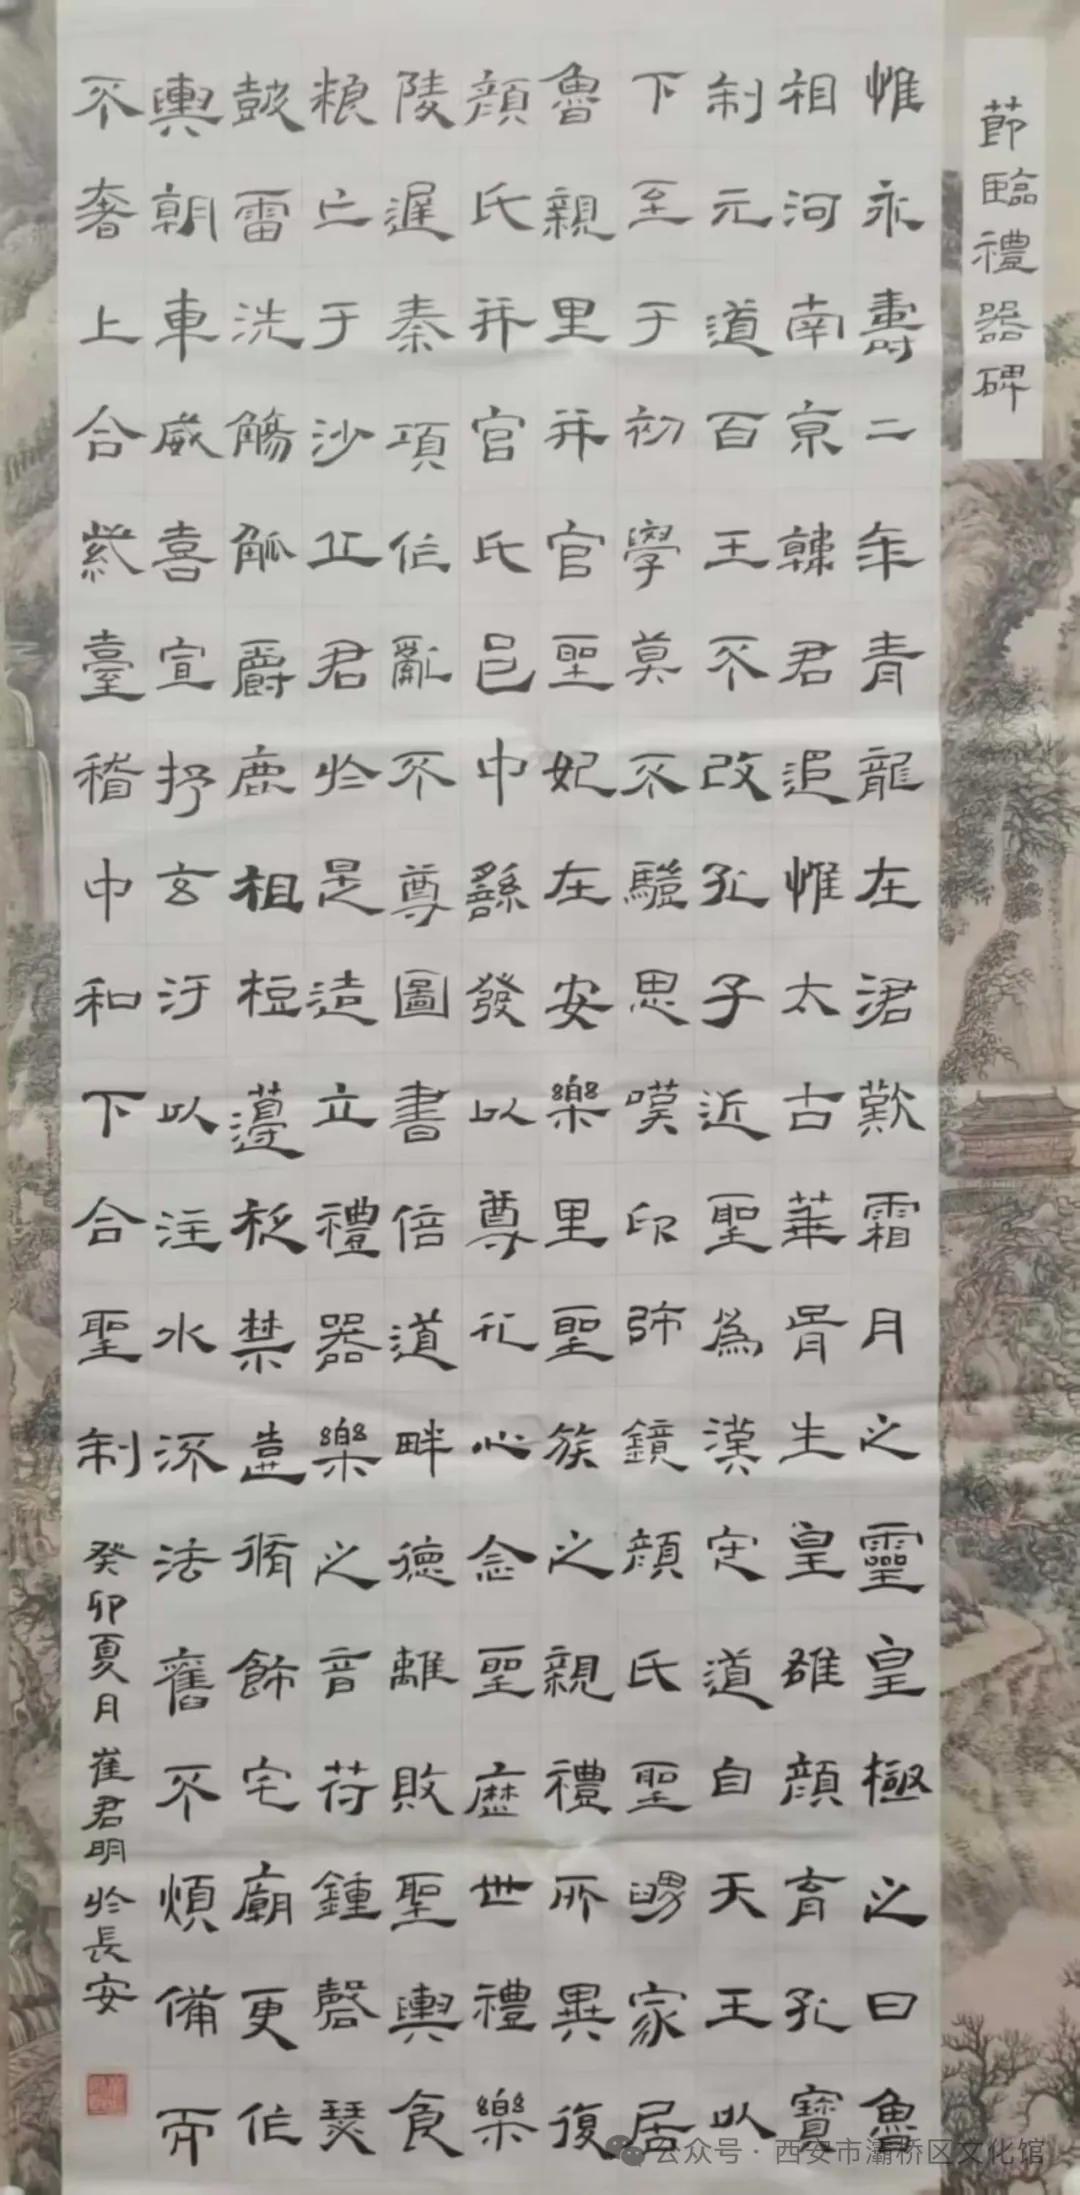 莭臨禮器碑
惟永壽二年青龍在涒歎霜月之靈皇極之日魯
相河南京韓君追惟太古華胥生皇雄顏育孔寶
制元道百王不改孔子近聖為漢定道自天王以
下至于初學莫不驥思嘆卬師鏡顏氏聖舅家居
魯親里并官聖妃在安樂里聖族之親禮所異復
顏氏并官氏邑中繇發以尊孔心念聖歷世禮樂
陵遲秦項作亂不尊圖書倍道畔德離敗聖輿食
粮亡于沙丘君於是造立禮器樂之音符鍾磬瑟
鼓雷洗觴觚爵鹿柤梪籩柉禁壺脩飾宅廟更作
輿朝車威喜宣抒玄汙以注水流法舊不煩備而
不奢上合紫臺稽中和下合聖制
癸卯夏月崔君明於長安
公众号·西安市灞桥区文化馆